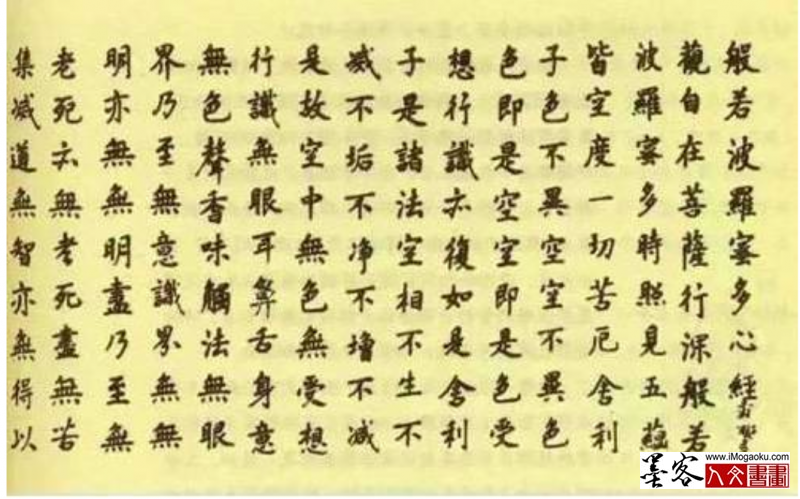 般若波羅蜜多心經
觀自在菩薩行深般若
波羅蜜多時照見五蘊
皆空度一切苦厄舍利
子色不異空空不異色
色即是空空即是色受
想行識亦復如是舍利
子是諸法空相不生不
滅不垢不净不增不減
是故空中無色無受想
行識無眼耳鼻舌身意
無色聲香味觸法無眼
界乃至無意識界無無
明亦無無明盡乃至無
老死亦無老死盡無苦
集滅道無智亦無得以
墨客
www.iMogaoku.com
人文書畫